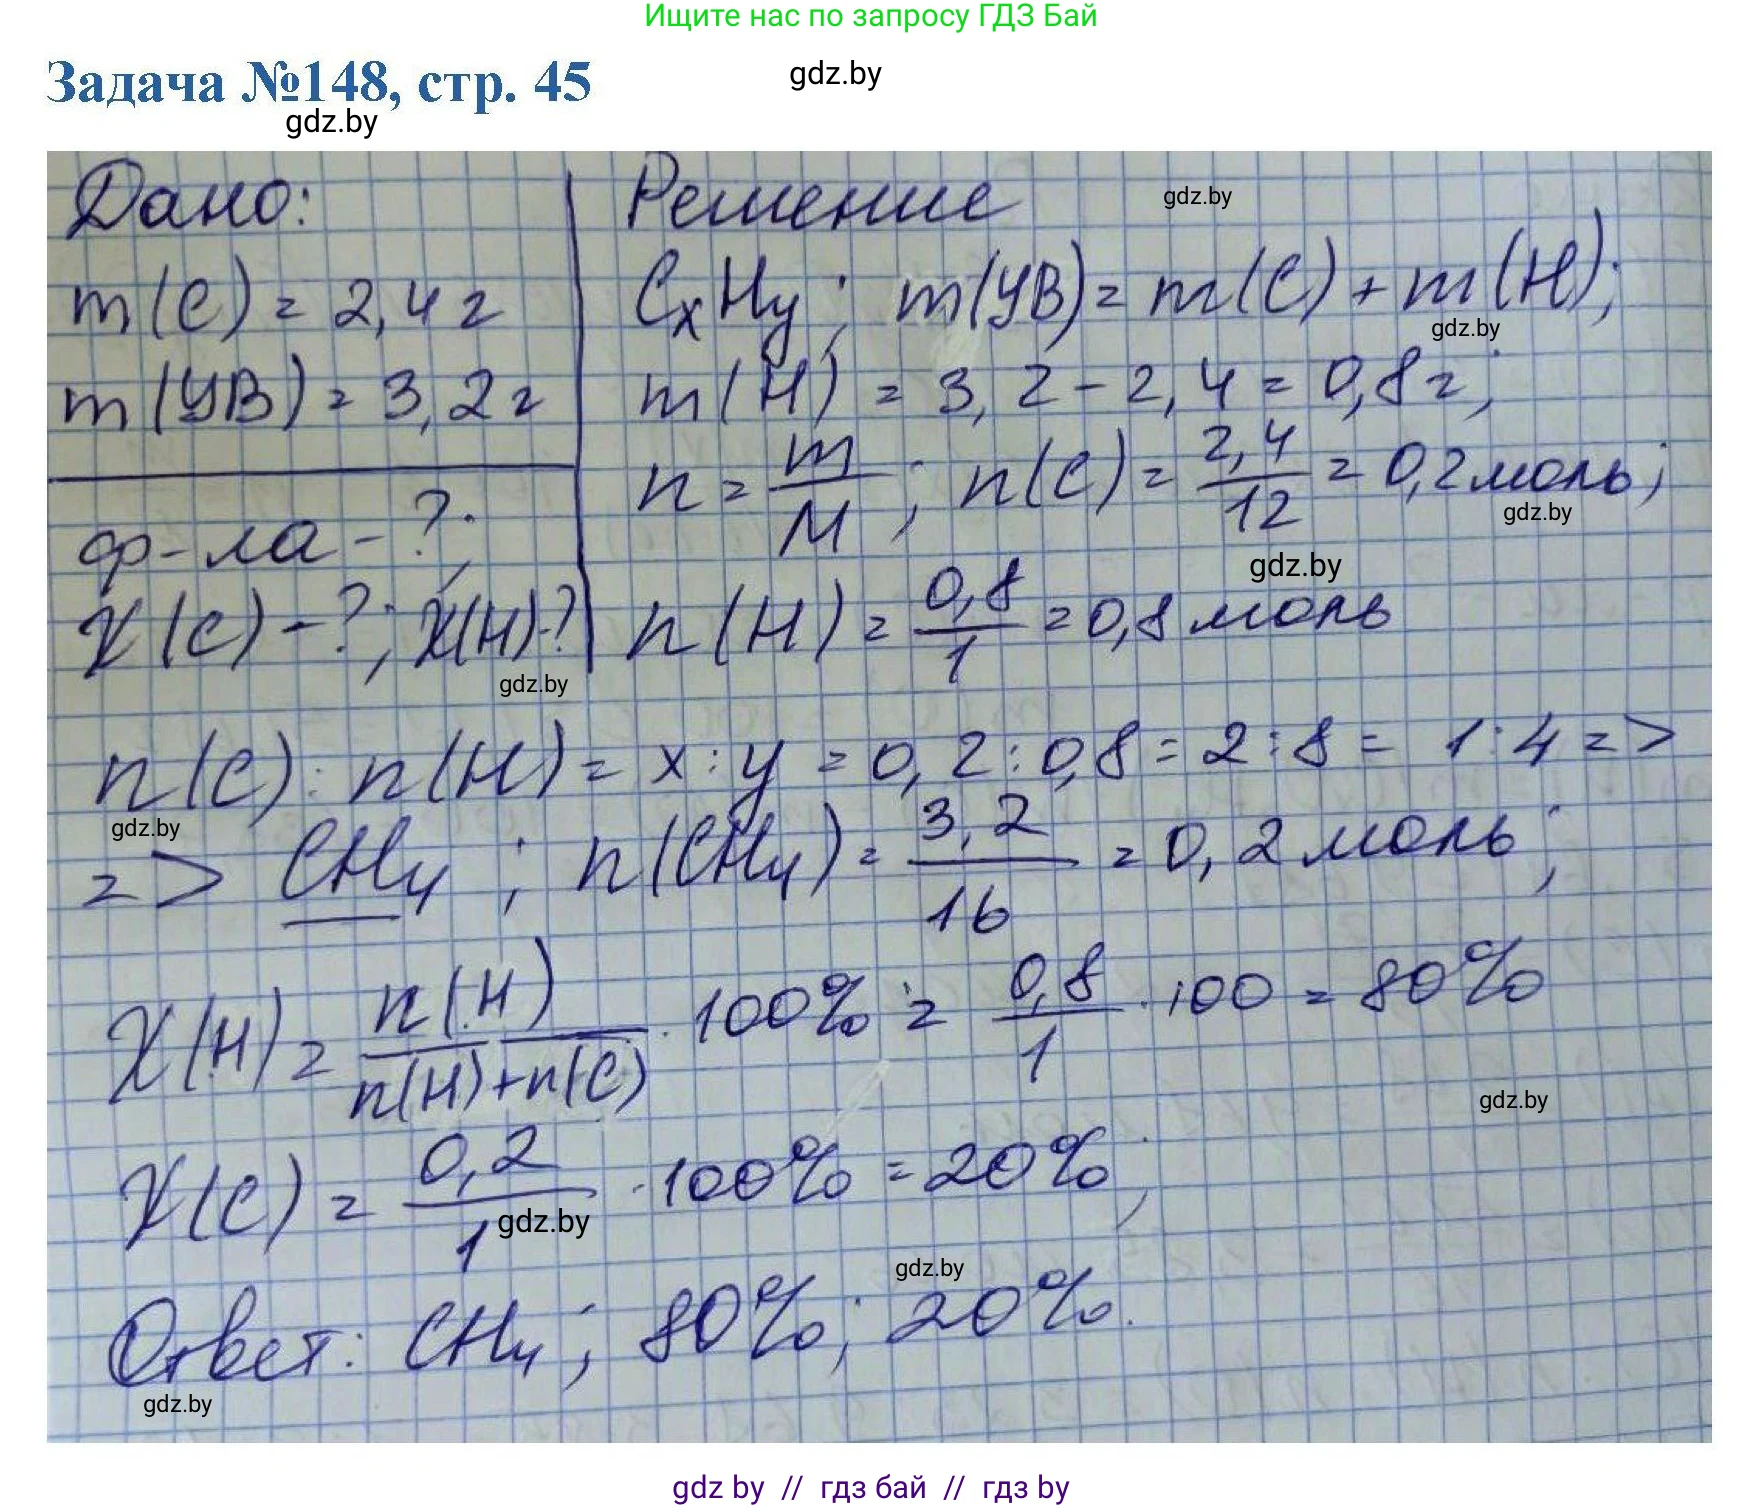 Ищите нас по запросу ГДЗ Бай
Задача №148, стр. 45
gdz.by
gdz.by
Дано:
m(C) = 2,4 г
m(УВ) = 3,2 г
ф-ла - ?;
X(C) - ?; X(H) - ?
gdz.by
Решение
gdz.by
CxHy; m(УВ) = m(C) + m(H);
gdz.by
m(H) = 3,2 - 2,4 = 0,8 г;
n = m/M; n(C) = 2,4/12 = 0,2 моль;
gdz.by
gdz.by
n(H) = 0,8/1 = 0,8 моль
n(C) : n(H) = x : y = 0,2 : 0,8 = 2 : 8 = 1 : 4 =>
gdz.by
=> CH₄; n(CH₄) = 3,2/16 = 0,2 моль;
X(H) = n(H)/n(H)+n(C) · 100% = 0,8/1 · 100 = 80%
gdz.by
X(C) = 0,2/1 · 100% = 20%;
gdz.by
gdz.by
Ответ: CH₄; 80%; 20%.
gdz.by
gdz by // гдз бай // gdz by